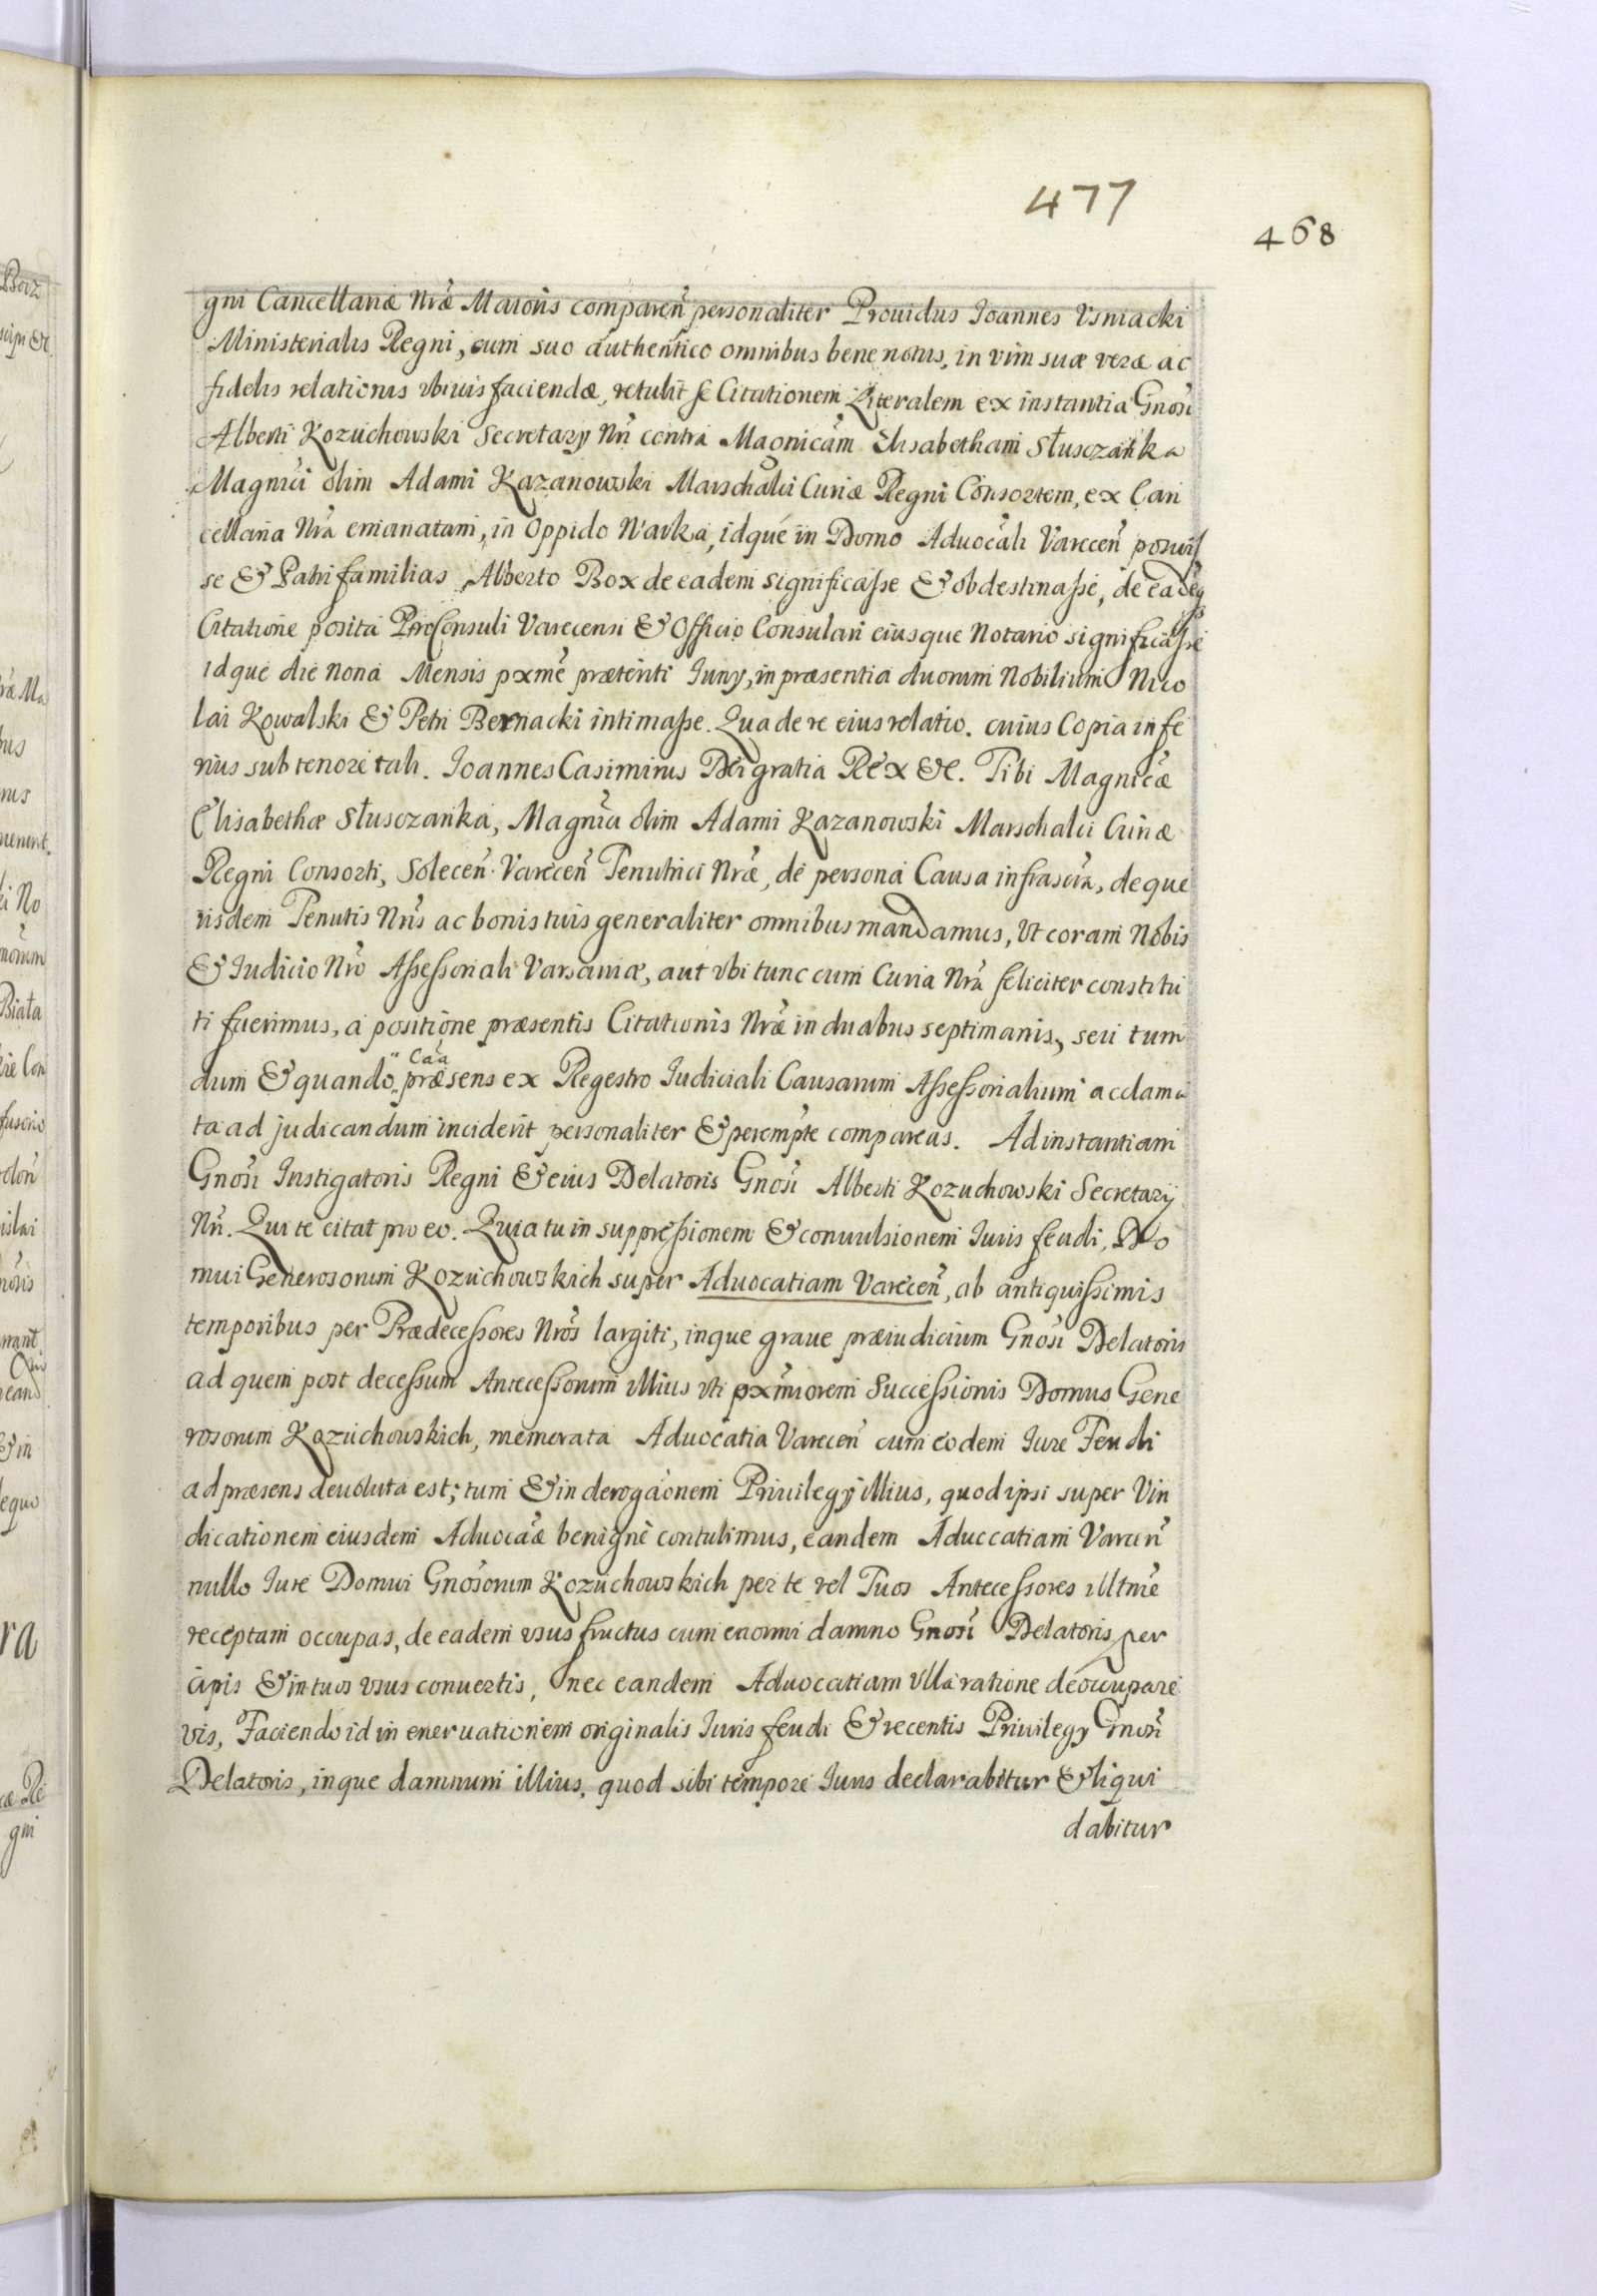 477
468
gni Cancellariæ Nræ Maioris comparen personaliter Prouidus Joannes Usniacki
Ministerialis Regni, cum suo authentico omnibus bene notus, in vim suæ veræ ac
fidelis relationis vbiuis faciendæ, retulit se Citationem Literalem ex instantia Gnosi
Alberti Kozuchowski Secretary Nri contra Magnicam Elisabetham Słusczanka
Magnici olim Adami Kazanowski Marschalci Curiæ Regni Consortem, ex Can
cellaria Nra emanatam, in Oppido Warka, idque in Domo Aduocali Varecen posuis
se & Patrifamilias Alberto Box de eadem significasse & obdestinasse, de eadeq
Citatione posita ProConsuli Varecensi & Officio Consulari eiusque Notario significasse
idque die nona Mensis pxme præteriti Juny, in præsentia duorum Nobilium Nico
lai Kowalski & Petri Bernacki intimasse. Qua de re eius relatio. cuius Copia infe
rius sub tenore tali. Joannes Casimirus Dei gratia Rex &c. Tibi Magnicæ
Elisabethæ Słusczanka, Magnici olim Adami Kazanowski Marschalci Curiæ
Regni Consorti, Solecen Varecen Tenutrici Nræ, de persona Causa infrascra, deque
iisdem Tenutis Nris ac bonis tuis generaliter omnibus mandamus, Vt coram Nobis
& Judicio Nro Assessoriali Varsauiæ, aut vbi tunc cum Curia Nra feliciter constitu
ti fuerimus, a positione præsentis Citationis Nræ in duabus septimanis, seu tum
dum & quando Caa præsens ex Regestro Judiciali Causarum Assessorialium acclama
ta ad judicandum inciderit personaliter & perempte compareas. Ad instantiam
Gnosi Instigatoris Regni & eius Delatoris Gnosi Alberti Kozuchowski Secretary
Nri. Qui te citat pro eo. Quia tu in suppressionem & conuulsionem Juris feudi, Do
mui Generosorum Kozuchowskich super Aduocatiam Varecen, ab antiquissimis
temporibus per Prædecessores Nros largiti, inque graue præiudicium Gnosi Delatoris
ad quem post decessum Antecessorum illius vti pxmiorem Successionis Domus Gene
rosorum Kozuchowskich, memorata Aduocatia Varecen cum eodem Jure Feudi
ad præsens deuoluta est; tum & in derogaonem Priuilegy illius, quod ipsi super Vin
dicationem eiusdem Aduocaæ benigne contulimus, eandem Aduccatiam Varecen
nullo Jure Domui Gnosorum Kozuchowskich per te vel Tuos Antecessores illtme
receptam occupas, de eadem vsus fructus cum enormi damno Gnosi Delatoris per
cipis & in tuos vsus conuertis, nec eandem Aduocatiam vlla ratione deoccupare
vis, Faciendo id in eneruationem originalis Juris feudi & recentis Priuilegy Gnosi
Delatoris, inque damnum illius, quod sibi tempore Juris declarabitur & liqui
dabitur